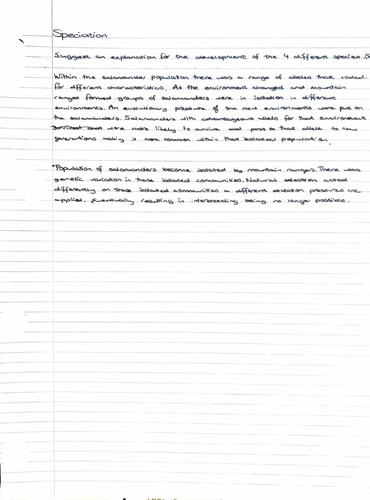 Speciation
Suggest an explanation for the development of the 4 different species
Within the salamander population there was a range of alleles that coded
for different characteristics. As the environment changed and mountain
ranges formed groups of salamanders were in isolation in different
environments. An evolutionary pressure of the new environments were put on
the salamanders. Salamanders with advantageous allels for that environment
were more likely to survive and pass on that allele to new
generations making it more common within that isolated population.
*Population of salamanders become isolated by mountain ranges. There was
genetic variation in these isolated communities. Natural selection acted
differently on these isolated communities = different selection pressures are
applied. Eventually resulting in interbreeding being no longer possible.